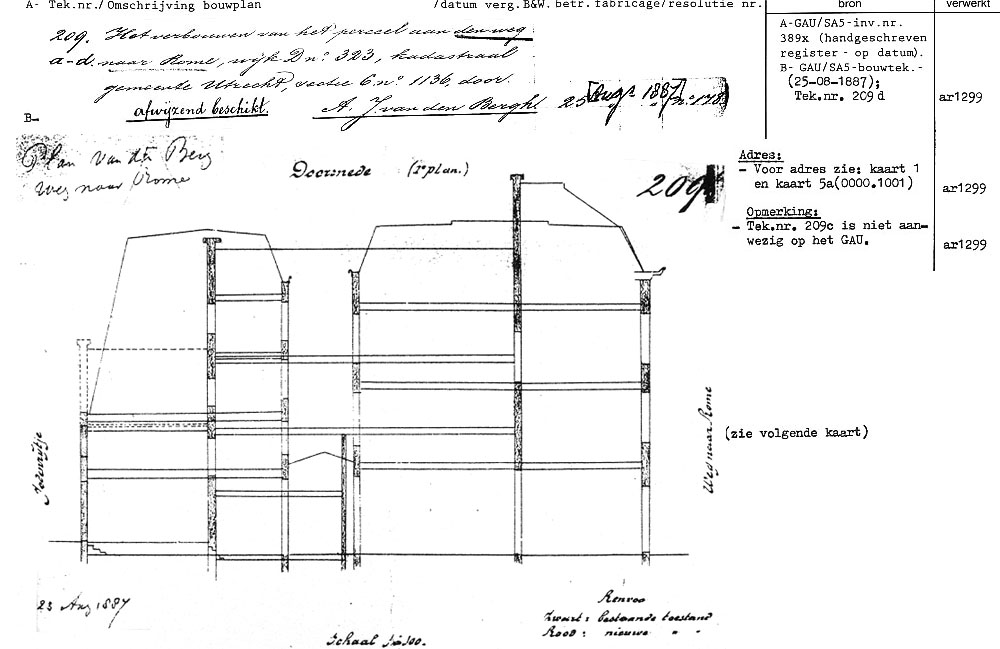 A- Tek.nr./Omschrijving bouwplan /datum verg.B&W.betr.fabricage/resolutie nr. bron verwerkt
209. Het verbouwen van het perceel aan den weg
a-d. naar Rome, wijk D no. 323, kadastraal
gemeente Utrecht, sectie C no. 1136, door
afwijzend beschikt. A. J. van den Bergh 25 Aug 1887
B-
A-GAU/SA5-inv.nr.
389x (handgeschreven
register - op datum).
B- GAU/SA5-bouwtek.-
(25-08-1887);
Tek.nr. 209 d
ar1299
Plan van den Berg
Weg naar Rome
Doorsnede (1e plan.)
209
Adres:
- Voor adres zie: kaart 1
en kaart 5a(0000.1001)
ar1299
Opmerking:
- Tek.nr. 209c is niet aan-
wezig op het GAU.
ar1299
Weg naar Rome
(zie volgende kaart)
23 Aug 1887
Renvooi
Zwart: bestaande toestand
Rood: nieuwe " "
Schaal 1 à 100.